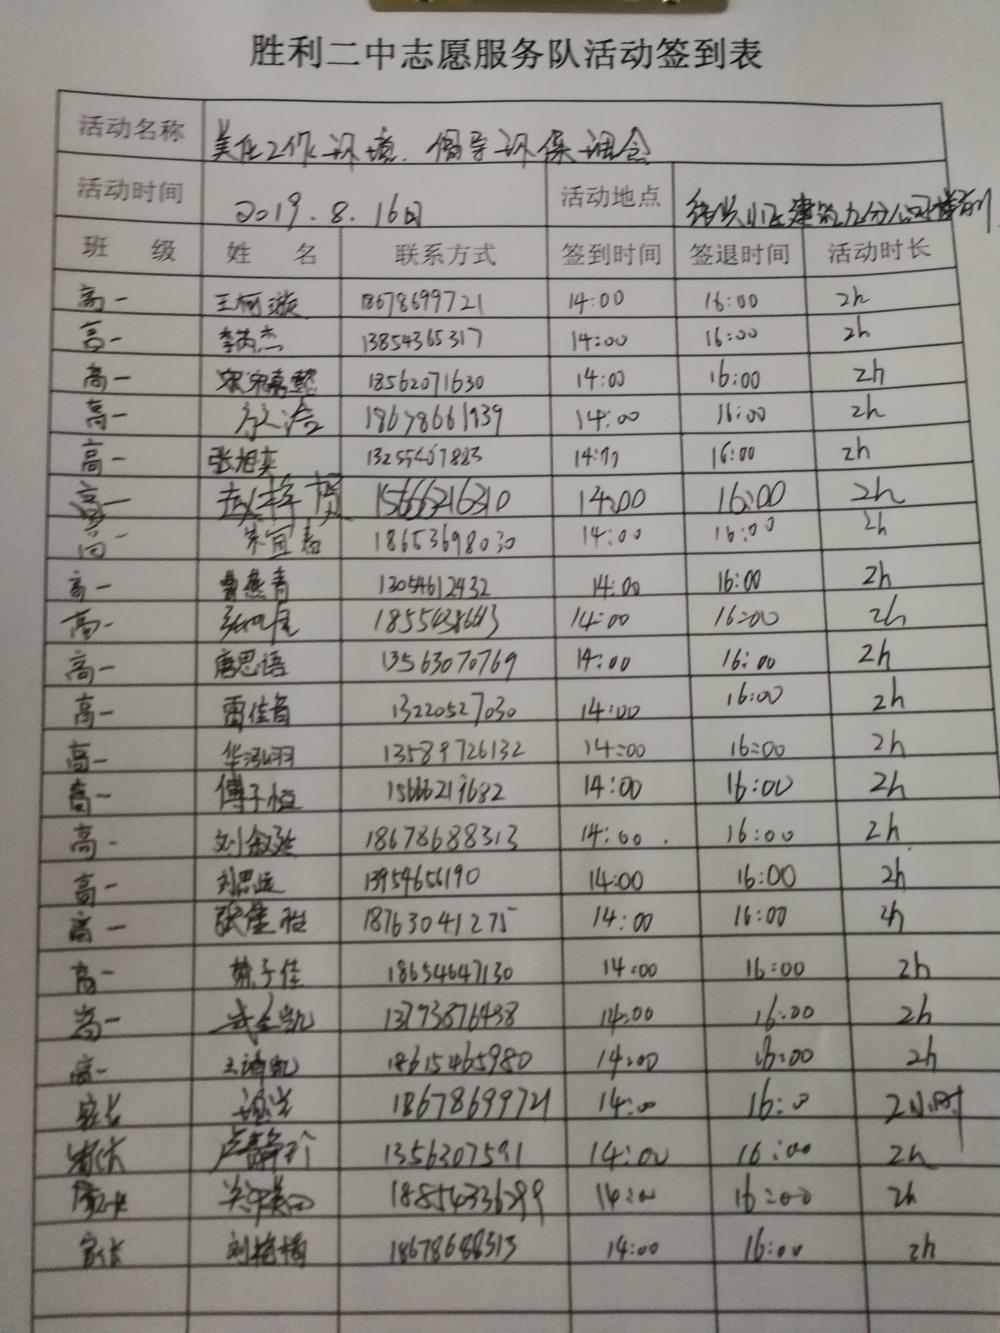 胜利二中志愿服务队活动签到表
活动名称 美化工作环境.倡导环保理念
活动时间 2019.8.16日 活动地点
班 级 姓 名 联系方式 签到时间 签退时间 活动时长
高一 18678699721 14:00 16:00 2h
高一 李芮杰 13854365317 14:00 16:00 2h
高一 18562071630 14:00 16:00 2h
高一 18678661939 14:00 16:00 2h
高一 张旭奕 14:00 16:00 2h
高一 15666216210 14:00 16:00 2h
高一 18653698030 14:00 16:00 2h
高一 曹燕青 13054612432 14:00 16:00 2h
高一 14:00 16:00 2h
高一 唐思语 13563070769 14:00 16:00 2h
高一 雷佳音 13220527030 14:00 16:00 2h
高一 华泓羽 13589726132 14:00 16:00 2h
高一 傅子恒 15666219682 14:00 16:00 2h
高一 18678688313 14:00. 16:00 2h
高一 刘思远 13954656190 14:00 16:00 2h
高一 18763041275 14:00 16:00 2h
高一 18654647130 14:00 16:00 2h
高一 13793876438 14:00 16:00 2h
高一 18615465980 14:00 16:00 2h
家长 18678699721 14:00 16:0 2小时
家长 1356307591 14:00 16:00 2h
家长 18854336299 14:00 16:00 2h
家长 刘艳梅 18678688313 14:00 16:00 2h